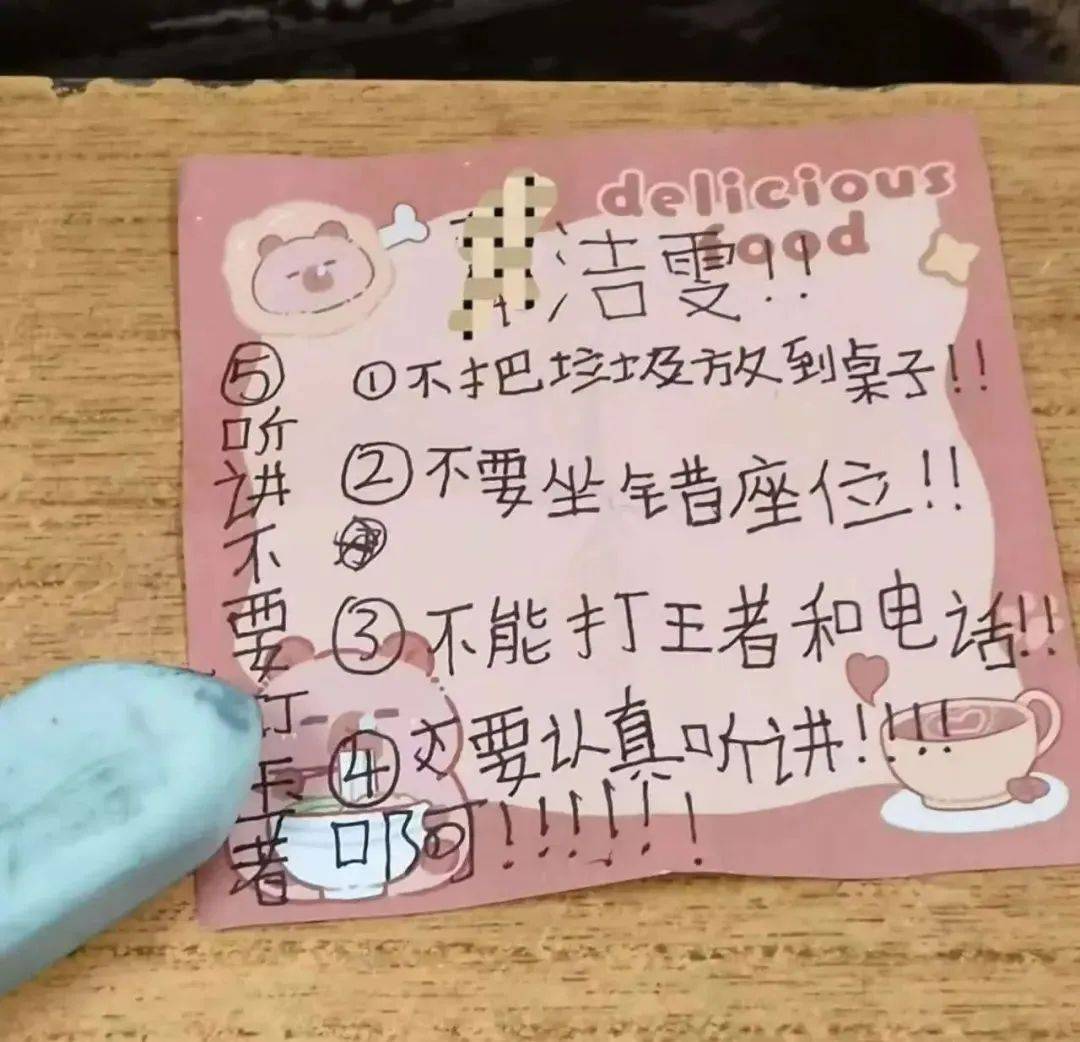 delicious
food
洁雯!!
①不把垃圾放到桌子!!
②不要坐错座位!!
③不能打王者和电话!!
④要认真听讲!!!!
⑤听讲不要
着
!!!!!!